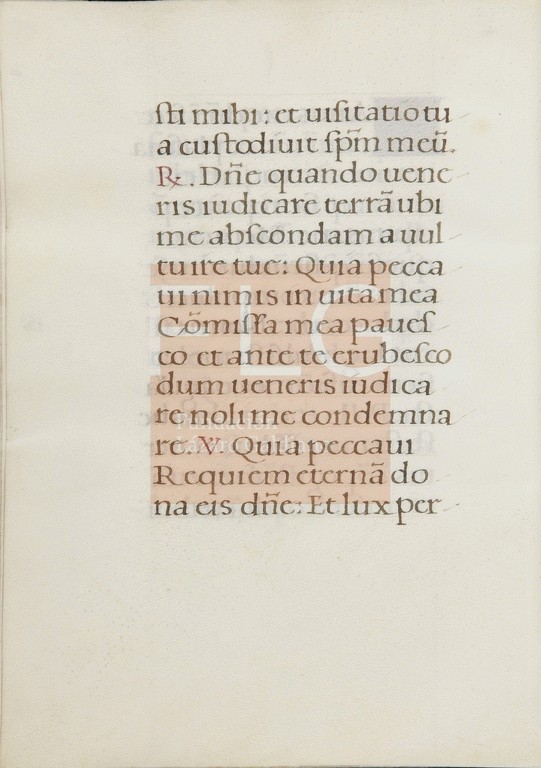 sti mihi: et uisitatio tu
a custodiuit sp̄m meū.
℞. Dn̄e quando uene
ris iudicare terrā ubi
me abscondam a uul
tu ire tue: Quia pecca
ui nimis in uita mea
Cōmissa mea pauef
co et ante te erubesco
dum ueneris iudica
re noli me condemna
re. V. Quia peccaui
Requiem eternā do
na eis dn̄e: Et lux per
FLG
Fundación
Lázaro Galdiano